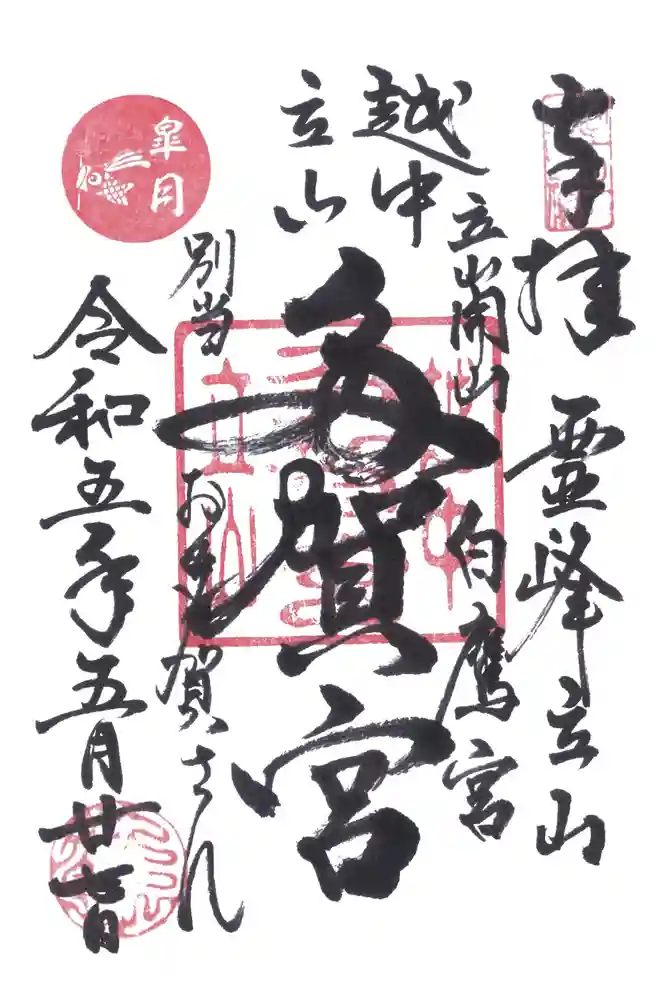 奉拝 霊峰立山
立山開山 白鷹宮
越中
立山
多賀宮
別当 お多賀さん
皐月
令和五年五月廿七日
越中
立山